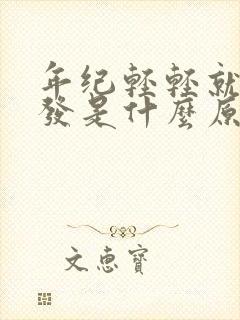 年纪轻轻就
發是什麼原
文惠寶